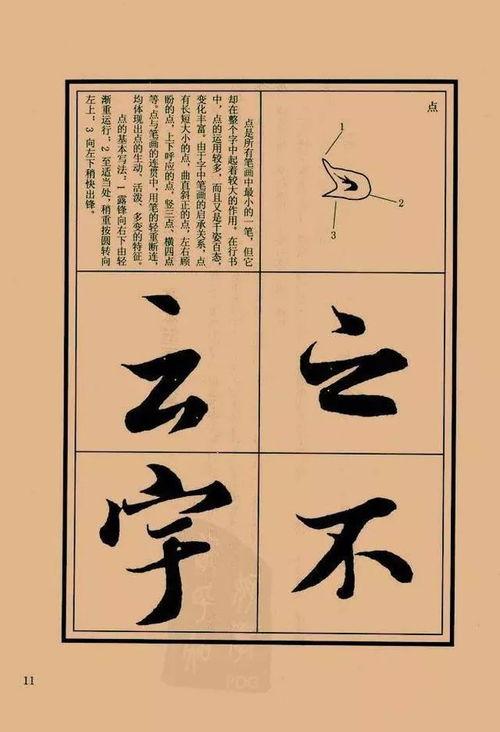 点
1
2
3
点是所有笔画中最小的一笔，但它
却在整个字中起着较大的作用。在行书
中，点的运用较多，而且又是千姿百态，
变化丰富。由于字中笔画的启承关系，点
有长短大小的点，曲直斜正的点，左右顾
盼的点，上下呼应的点，竖三点、横四点
等。点与笔画的连贯中，用笔的轻重断连，
均体现出点的生动、活泼、多变的特征。
点的基本写法：1 露锋向右下由轻
渐重运行；2 至适当处，稍重按圆转向
左上；3 向左下稍快出锋。
之
不
云
宇
11
PDG